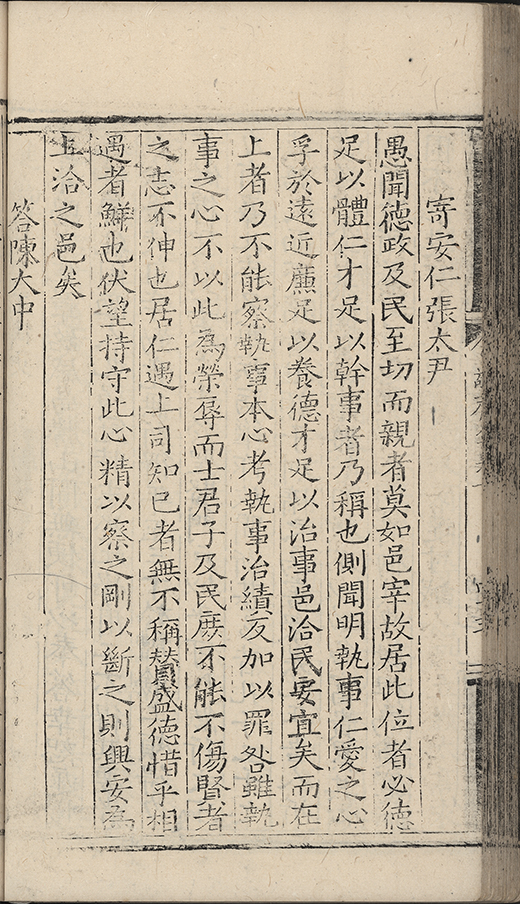 寄安仁張太尹
愚聞德政及民至切而親者莫如邑宰故居此位者必德
足以體仁才足以幹事者乃稱也側聞明執事仁愛之心
孚於遠近廉足以養德才足以治事邑治民安宜矣而在
上者乃不能察執事本心考執事治績反加以罪咎雖執
事之心不以此為榮辱而士君子及民庶不能不傷賢者
之志不伸也居仁遇上司知己者無不稱賛盛德惜乎相
遇者鮮也伏望持守此心精以察之剛以斷之則興安為
上治之邑矣
答陳大中